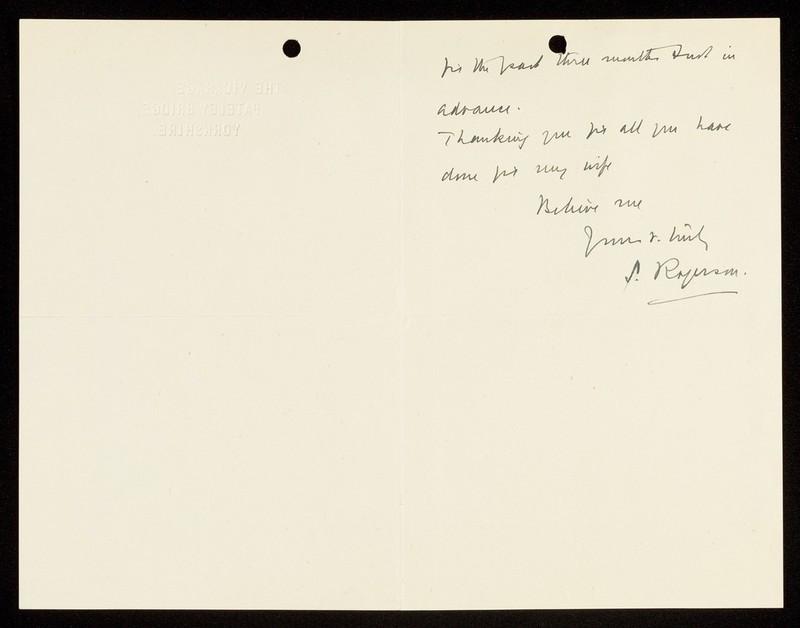 THE VICARAGE
PATELEY BRIDGE
YORKSHIRE.
for the past three months & not in
advance.
Thanking you for all you have
done for my wife
Believe me
Yours v. truly
S. Rogerson.